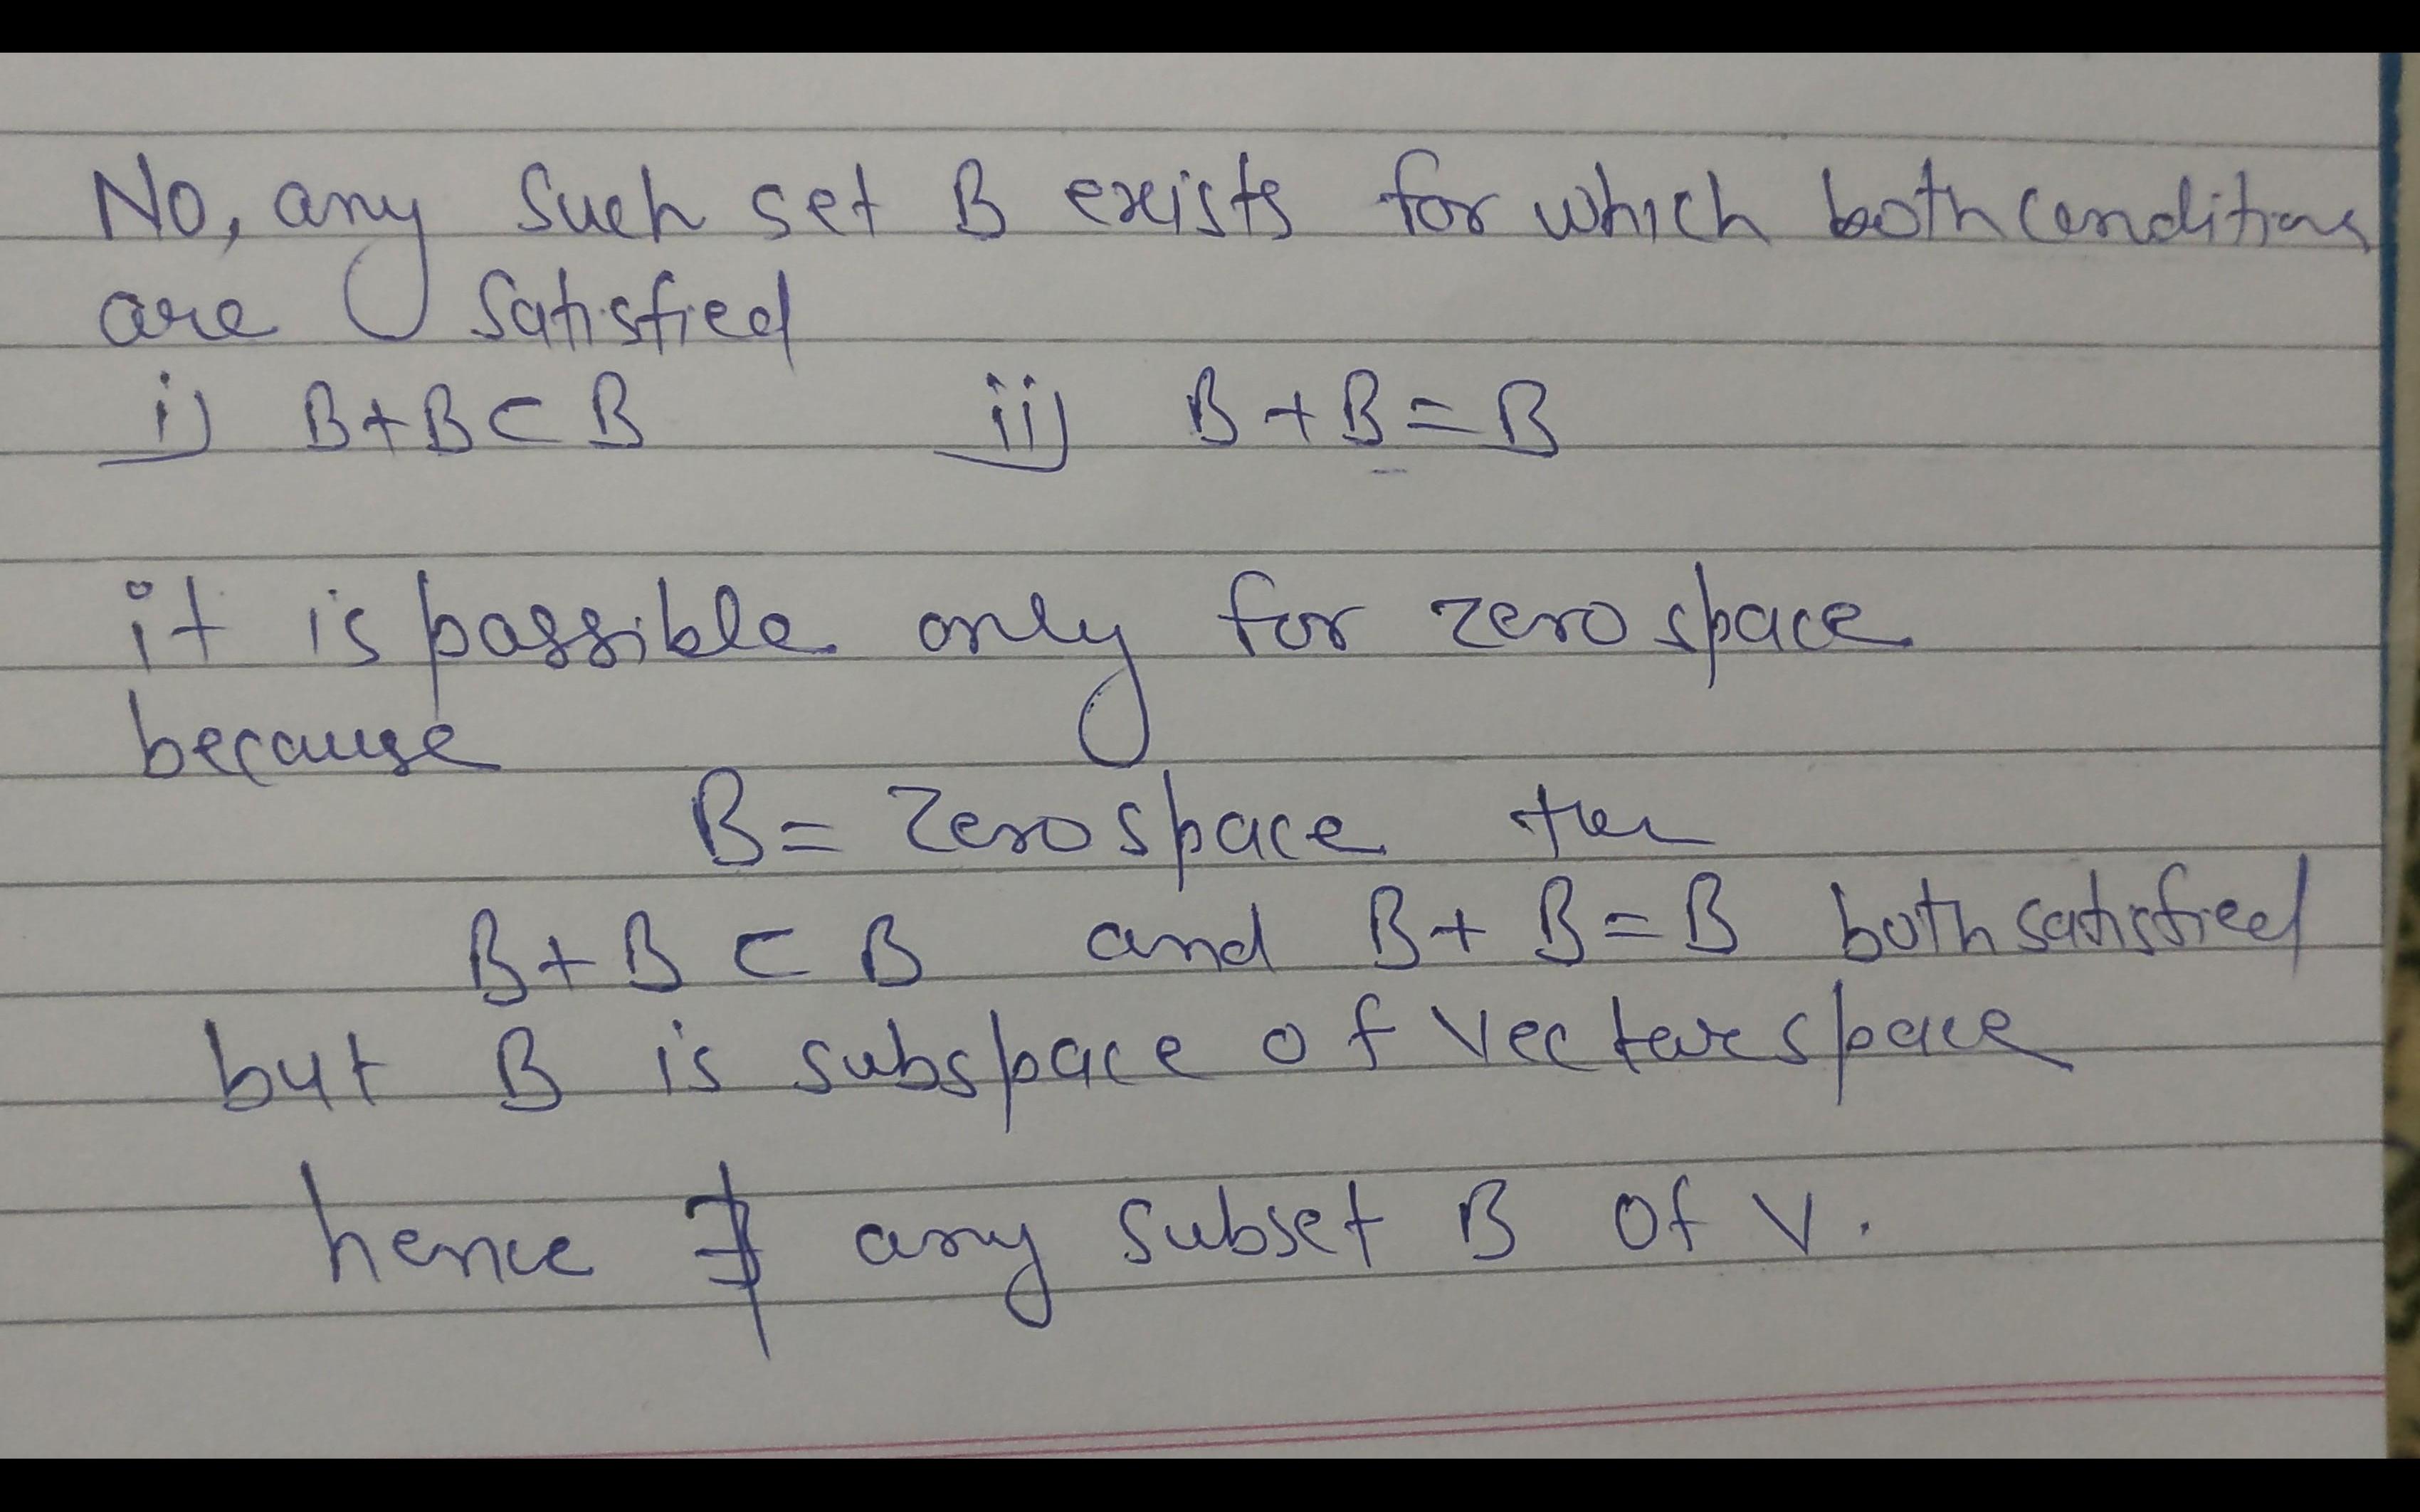 No, any such set B exists for which both conditions
are satisfied
i) B+B⊂B ii) B+B=B
it is possible only for zero space
because
B= Zero space then
B+B ⊂ B and B+B=B both satisfied
but B is subspace of vector space
hence ∄ any subset B of V.